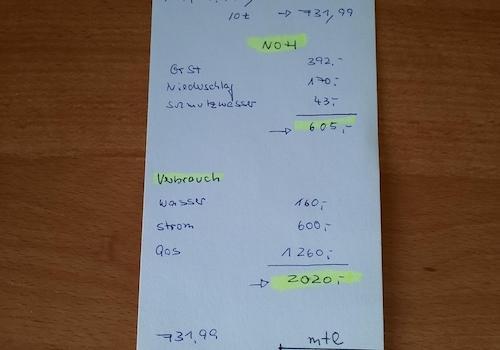 10t → 731,99
NOH
GrSt 392,-
Niederschlag 170,-
Schmutzwasser 43,-
→ 605,-
Verbrauch
Wasser 160,-
Strom 600,-
Gas 1260,-
→ 2020,-
731,99 mtl